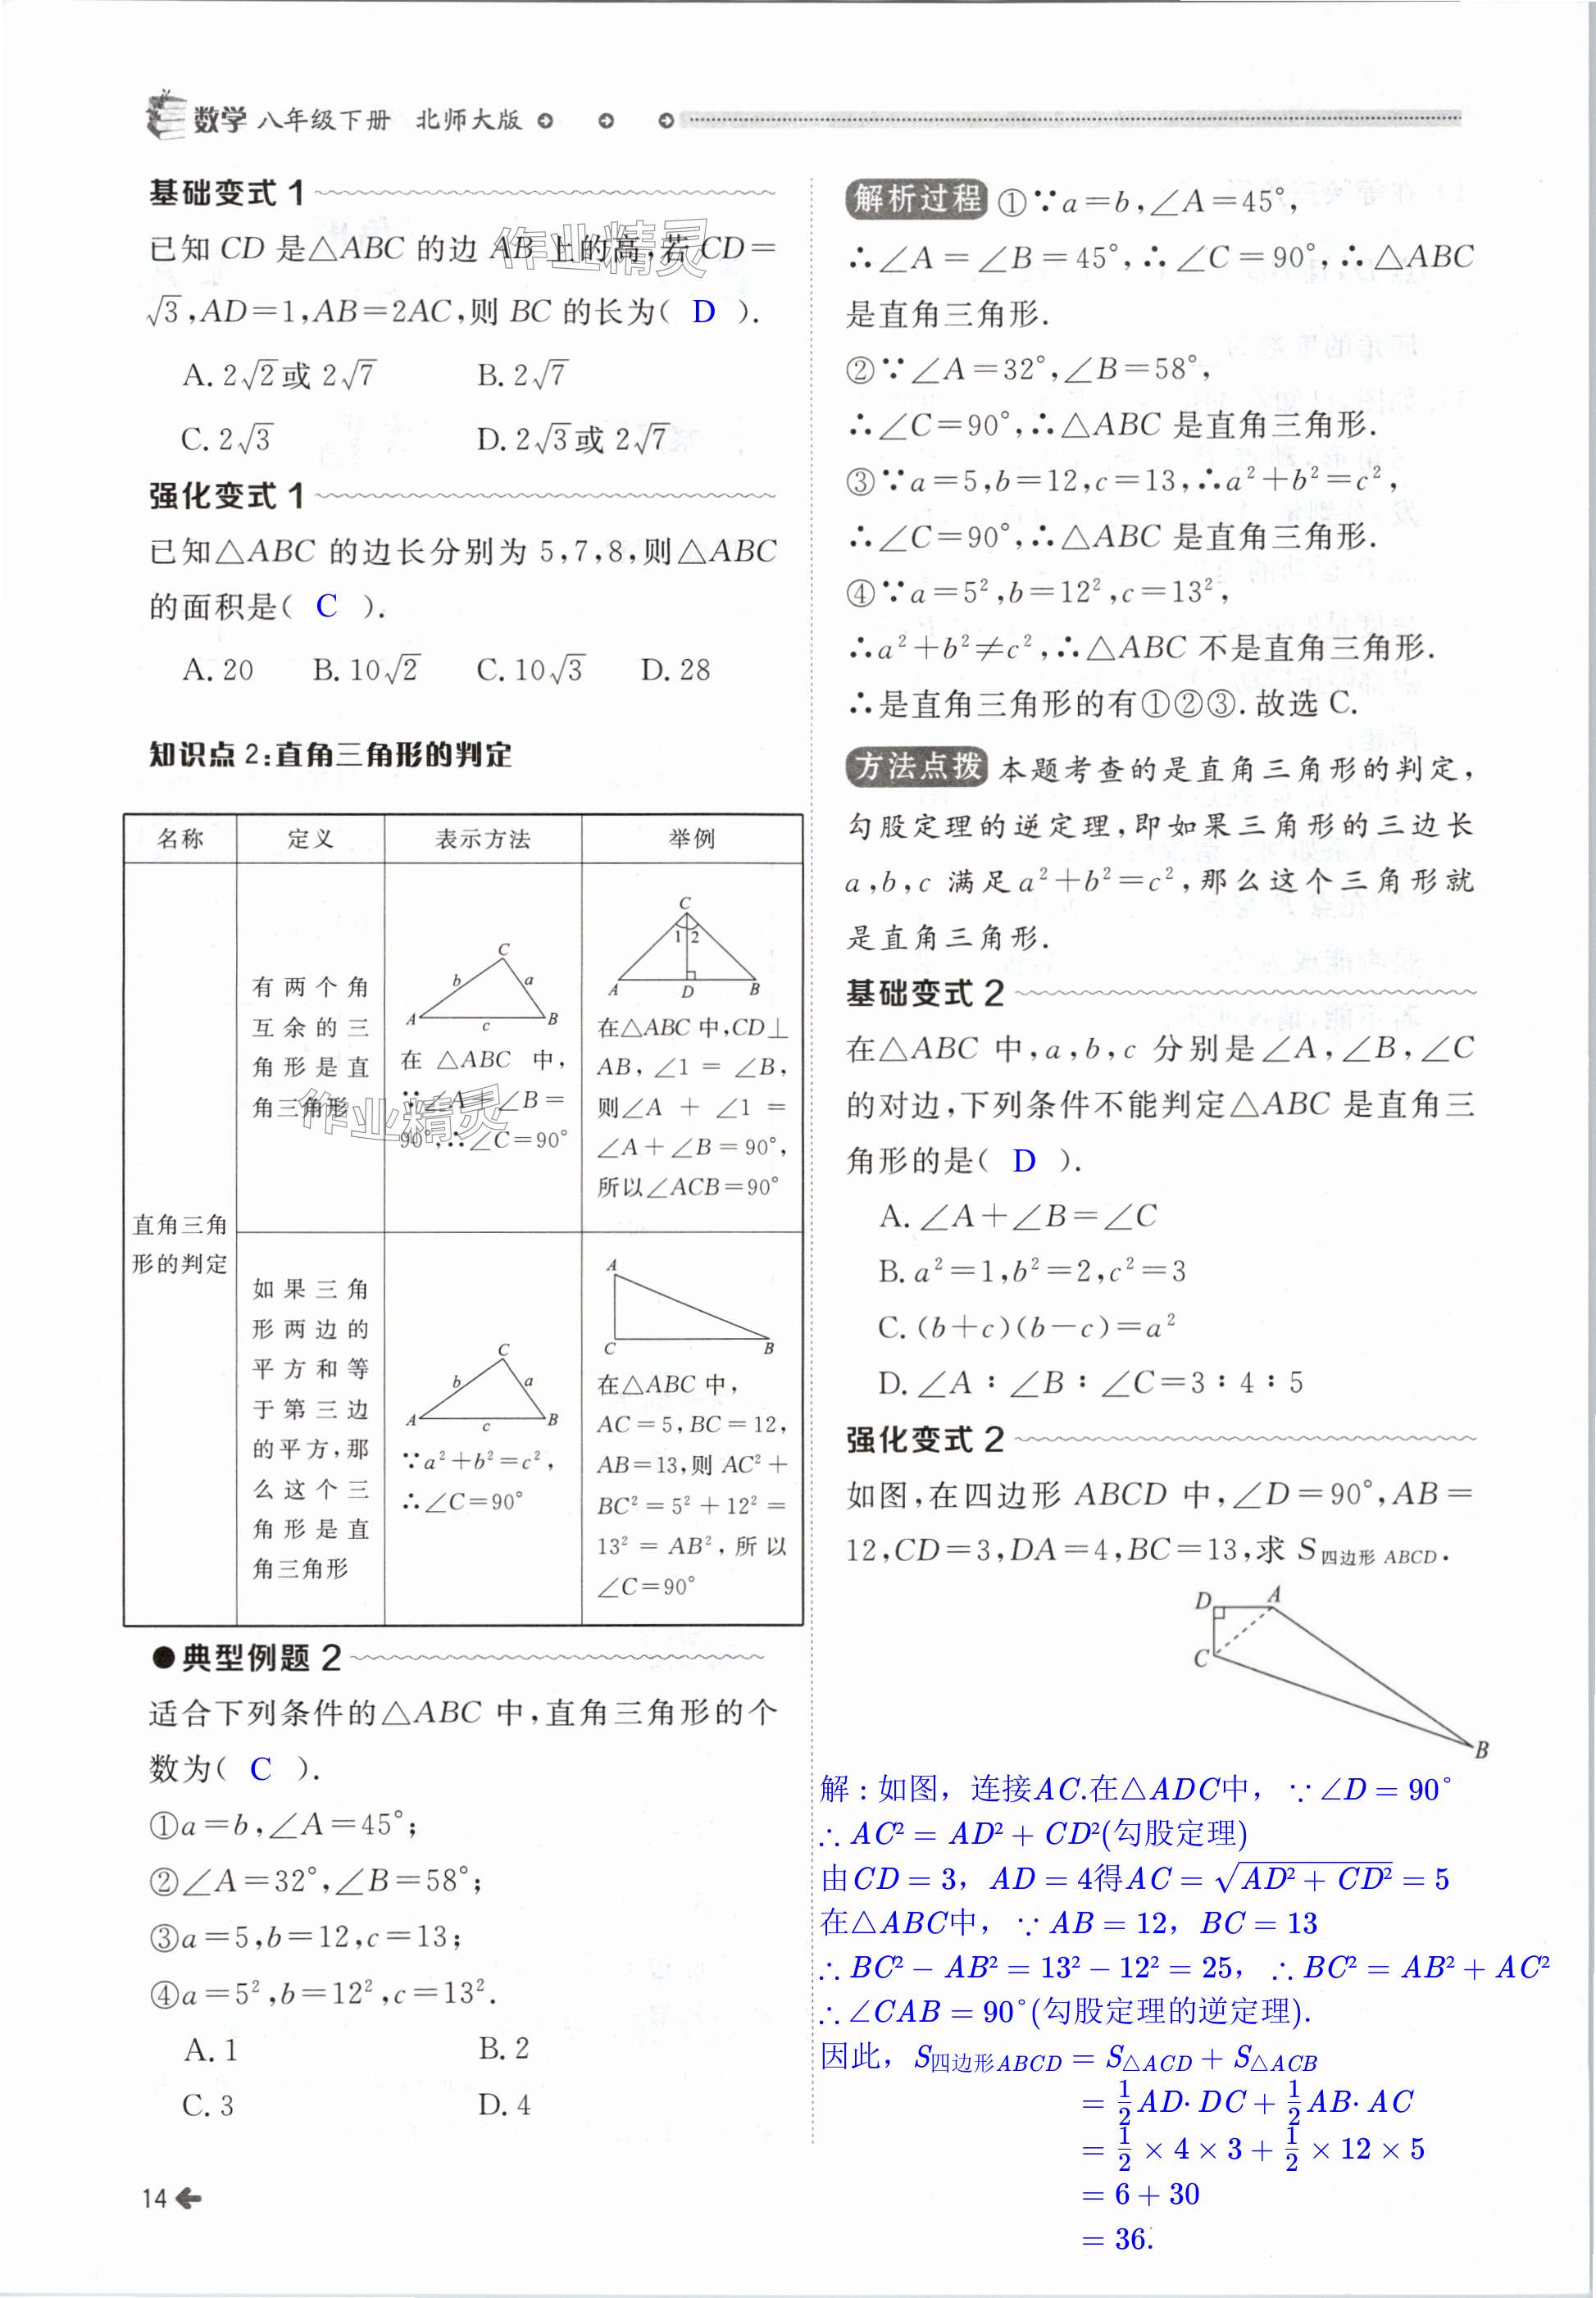 数学 八年级下册 北师大版
基础变式 1
已知 CD 是△ABC 的边 AB 上的高,若 CD=
√3,AD=1,AB=2AC,则 BC 的长为( D ).
A. 2√2或 2√7 B. 2√7
C. 2√3 D. 2√3或 2√7
强化变式 1
已知△ABC 的边长分别为 5,7,8,则△ABC
的面积是( C ).
A. 20 B. 10√2 C. 10√3 D. 28
知识点 2:直角三角形的判定
名称 定义 表示方法 举例
直角三角
形的判定
有两个角
互余的三
角形是直
角三角形
C
b a
A c B
在 △ABC 中,
∵∠A+∠B=
90°,∴∠C=90°
C
1 2
A D B
在△ABC 中,CD⊥
AB, ∠1 = ∠B,
则∠A + ∠1 =
∠A+∠B=90°,
所以∠ACB=90°
如果三角
形两边的
平方和等
于第三边
的平方,那
么这个三
角形是直
角三角形
C
b a
A c B
∵a²+b²=c²,
∴∠C=90°
A
C B
在△ABC 中,
AC=5,BC=12,
AB=13,则 AC²+
BC²=5²+12²=
13²=AB²,所以
∠C=90°
●典型例题 2
适合下列条件的△ABC 中,直角三角形的个
数为( C ).
①a=b,∠A=45°;
②∠A=32°,∠B=58°;
③a=5,b=12,c=13;
④a=5²,b=12²,c=13².
A. 1 B. 2
C. 3 D. 4
14
解析过程 ①∵a=b,∠A=45°,
∴∠A=∠B=45°,∴∠C=90°,∴△ABC
是直角三角形.
②∵∠A=32°,∠B=58°,
∴∠C=90°,∴△ABC 是直角三角形.
③∵a=5,b=12,c=13,∴a²+b²=c²,
∴∠C=90°,∴△ABC 是直角三角形.
④∵a=5²,b=12²,c=13²,
∴a²+b²≠c²,∴△ABC 不是直角三角形.
∴是直角三角形的有①②③.故选 C.
方法点拨 本题考查的是直角三角形的判定,
勾股定理的逆定理,即如果三角形的三边长
a,b,c 满足a²+b²=c²,那么这个三角形就
是直角三角形.
基础变式 2
在△ABC 中,a,b,c 分别是∠A,∠B,∠C
的对边,下列条件不能判定△ABC 是直角三
角形的是( D ).
A. ∠A+∠B=∠C
B. a²=1,b²=2,c²=3
C. (b+c)(b-c)=a²
D. ∠A∶∠B∶∠C=3∶4∶5
强化变式 2
如图,在四边形 ABCD 中,∠D=90°,AB=
12,CD=3,DA=4,BC=13,求 S四边形 ABCD.
D A
C
B
解:如图，连接AC.在△ADC中，∵∠D=90°
∴AC²=AD²+CD²(勾股定理)
由CD=3，AD=4得AC=√(AD²+CD²)=5
在△ABC中，∵AB=12，BC=13
∴BC²-AB²=13²-12²=25，∴BC²=AB²+AC²
∴∠CAB=90°(勾股定理的逆定理).
因此，S四边形ABCD=S△ACD+S△ACB
=1/2AD·DC+1/2AB·AC
=1/2×4×3+1/2×12×5
=6+30
=36.
作业精灵
作业精灵